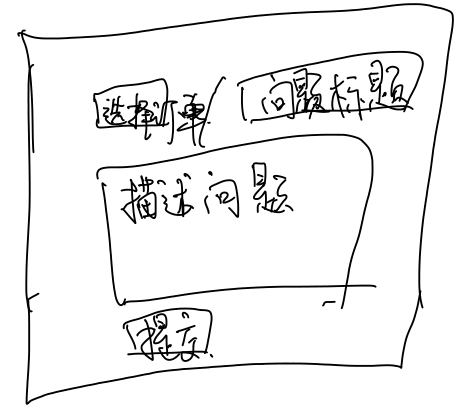 选择订单/ 问题标题
描述问题
提交